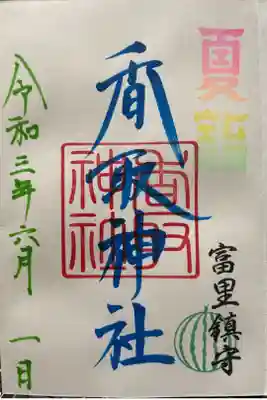 夏詣
富里鎮守
香取神社
香取神社
令和三年六月 一日